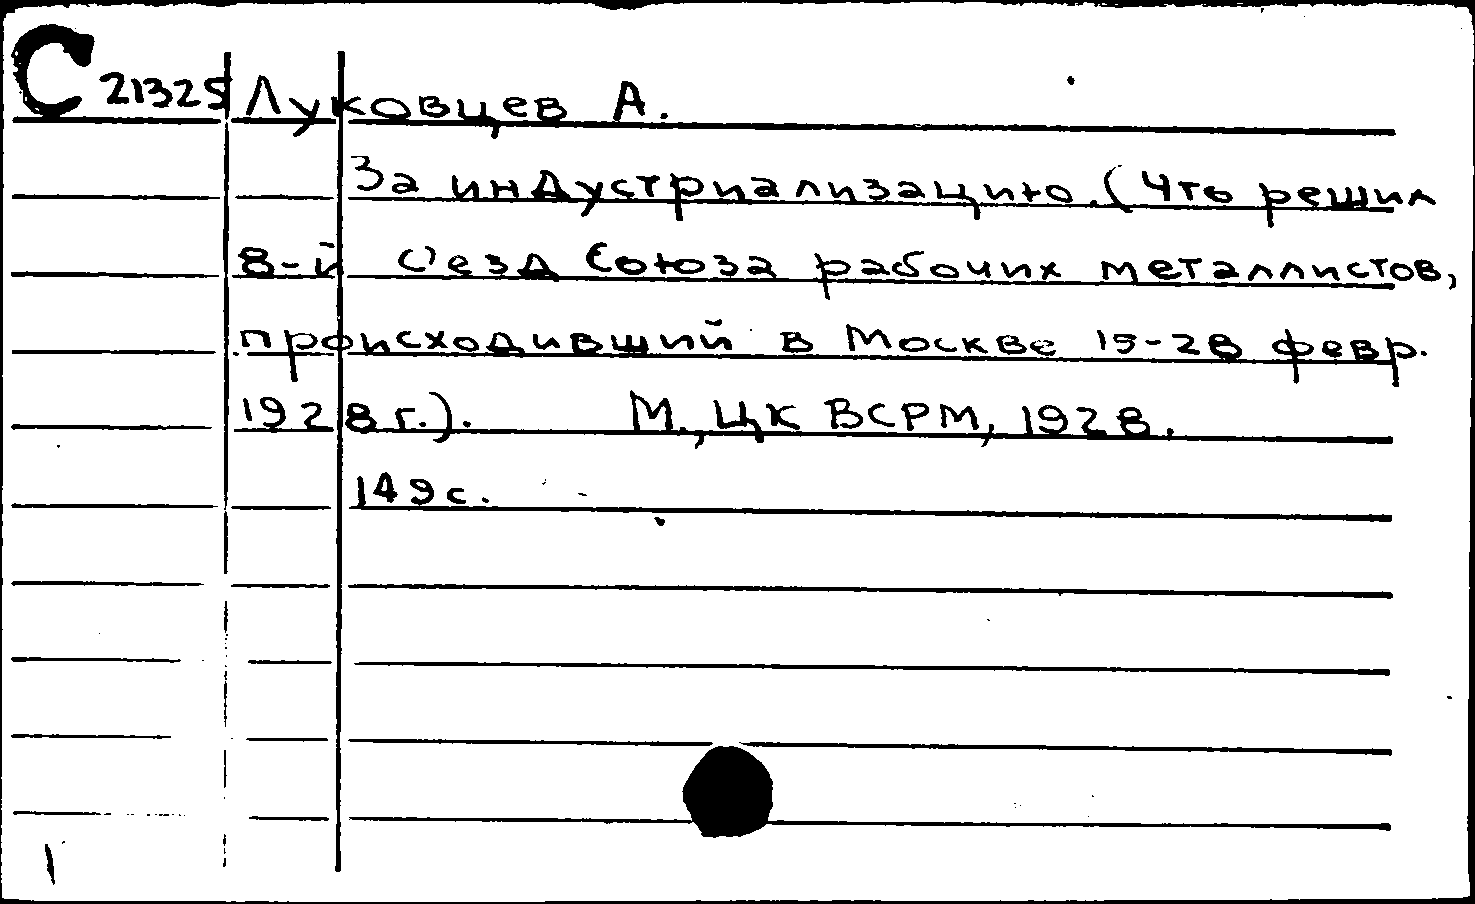 С 21325 Луковцев А.
За индустриализацию. (Что решил
8-й с'езд Союза рабочих металлистов,
происходивший в Москве 15-28 февр.
1928 г.). М., ЦК ВСРМ, 1928.
149 с.
1